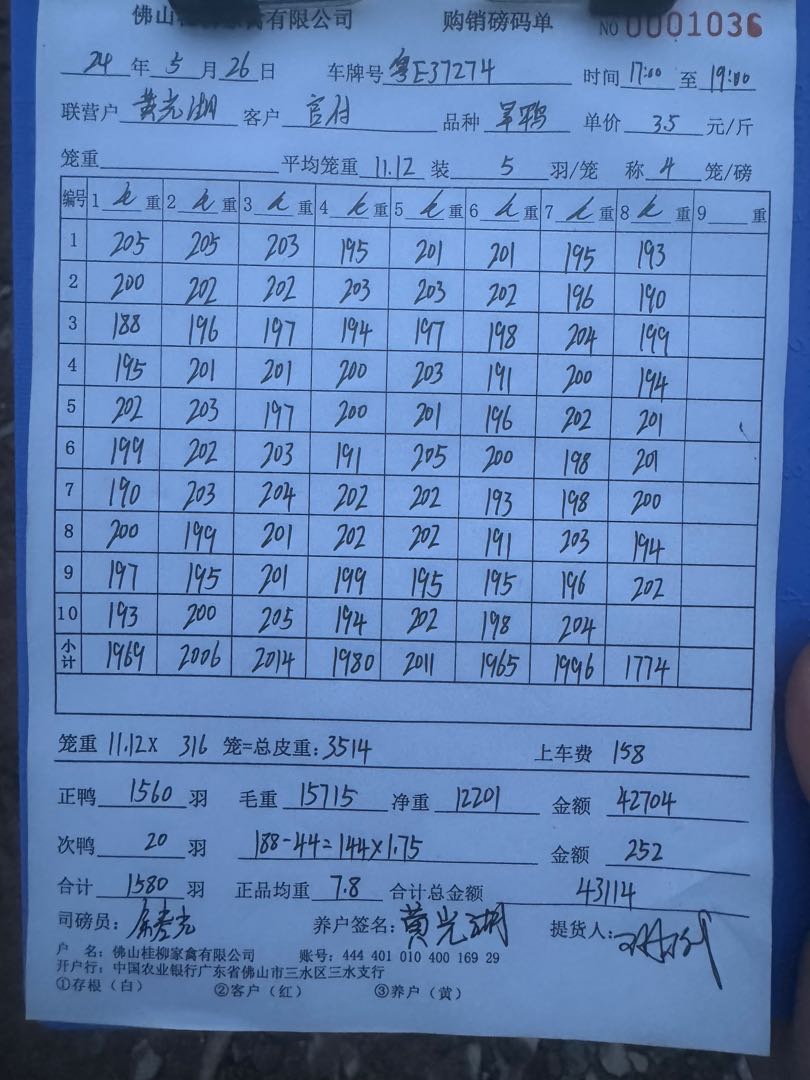 佛山桂柳家禽有限公司 购销磅码单 NO 0001036
24 年 5 月 26 日 车牌号 粤E37274 时间 17:00 至 19:00
联营户 黄光湖 客户 官付 品种 单价 3.5 元/斤
笼重 平均笼重 11.12 装 5 羽/笼 称 4 笼/磅
编号 1 重 2 重 3 重 4 重 5 重 6 重 7 重 8 重 9 重
1 205 205 203 195 201 201 195 193
2 200 202 202 203 203 202 196 190
3 188 196 197 194 197 198 204 199
4 195 201 201 200 203 191 200 194
5 202 203 197 200 201 196 202 201
6 199 202 203 191 205 200 198 201
7 190 203 204 202 202 193 198 200
8 200 199 201 202 202 191 203 194
9 197 195 201 199 195 195 196 202
10 193 200 205 194 202 198 204
小计 1969 2006 2014 1980 2011 1965 1996 1774
笼重 11.12 X 316 笼=总皮重: 3514 上车费 158
正鸭 1560 羽 毛重 15715 净重 12201 金额 42704
次鸭 20 羽 188-44=144X1.75 金额 252
合计 1580 羽 正品均重 7.8 合计总金额 43114
司磅员: 养户签名: 黄光湖 提货人:
户 名: 佛山桂柳家禽有限公司 账号: 444 401 010 400 169 29
开户行: 中国农业银行广东省佛山市三水区三水支行
①存根（白） ②客户（红） ③养户（黄）